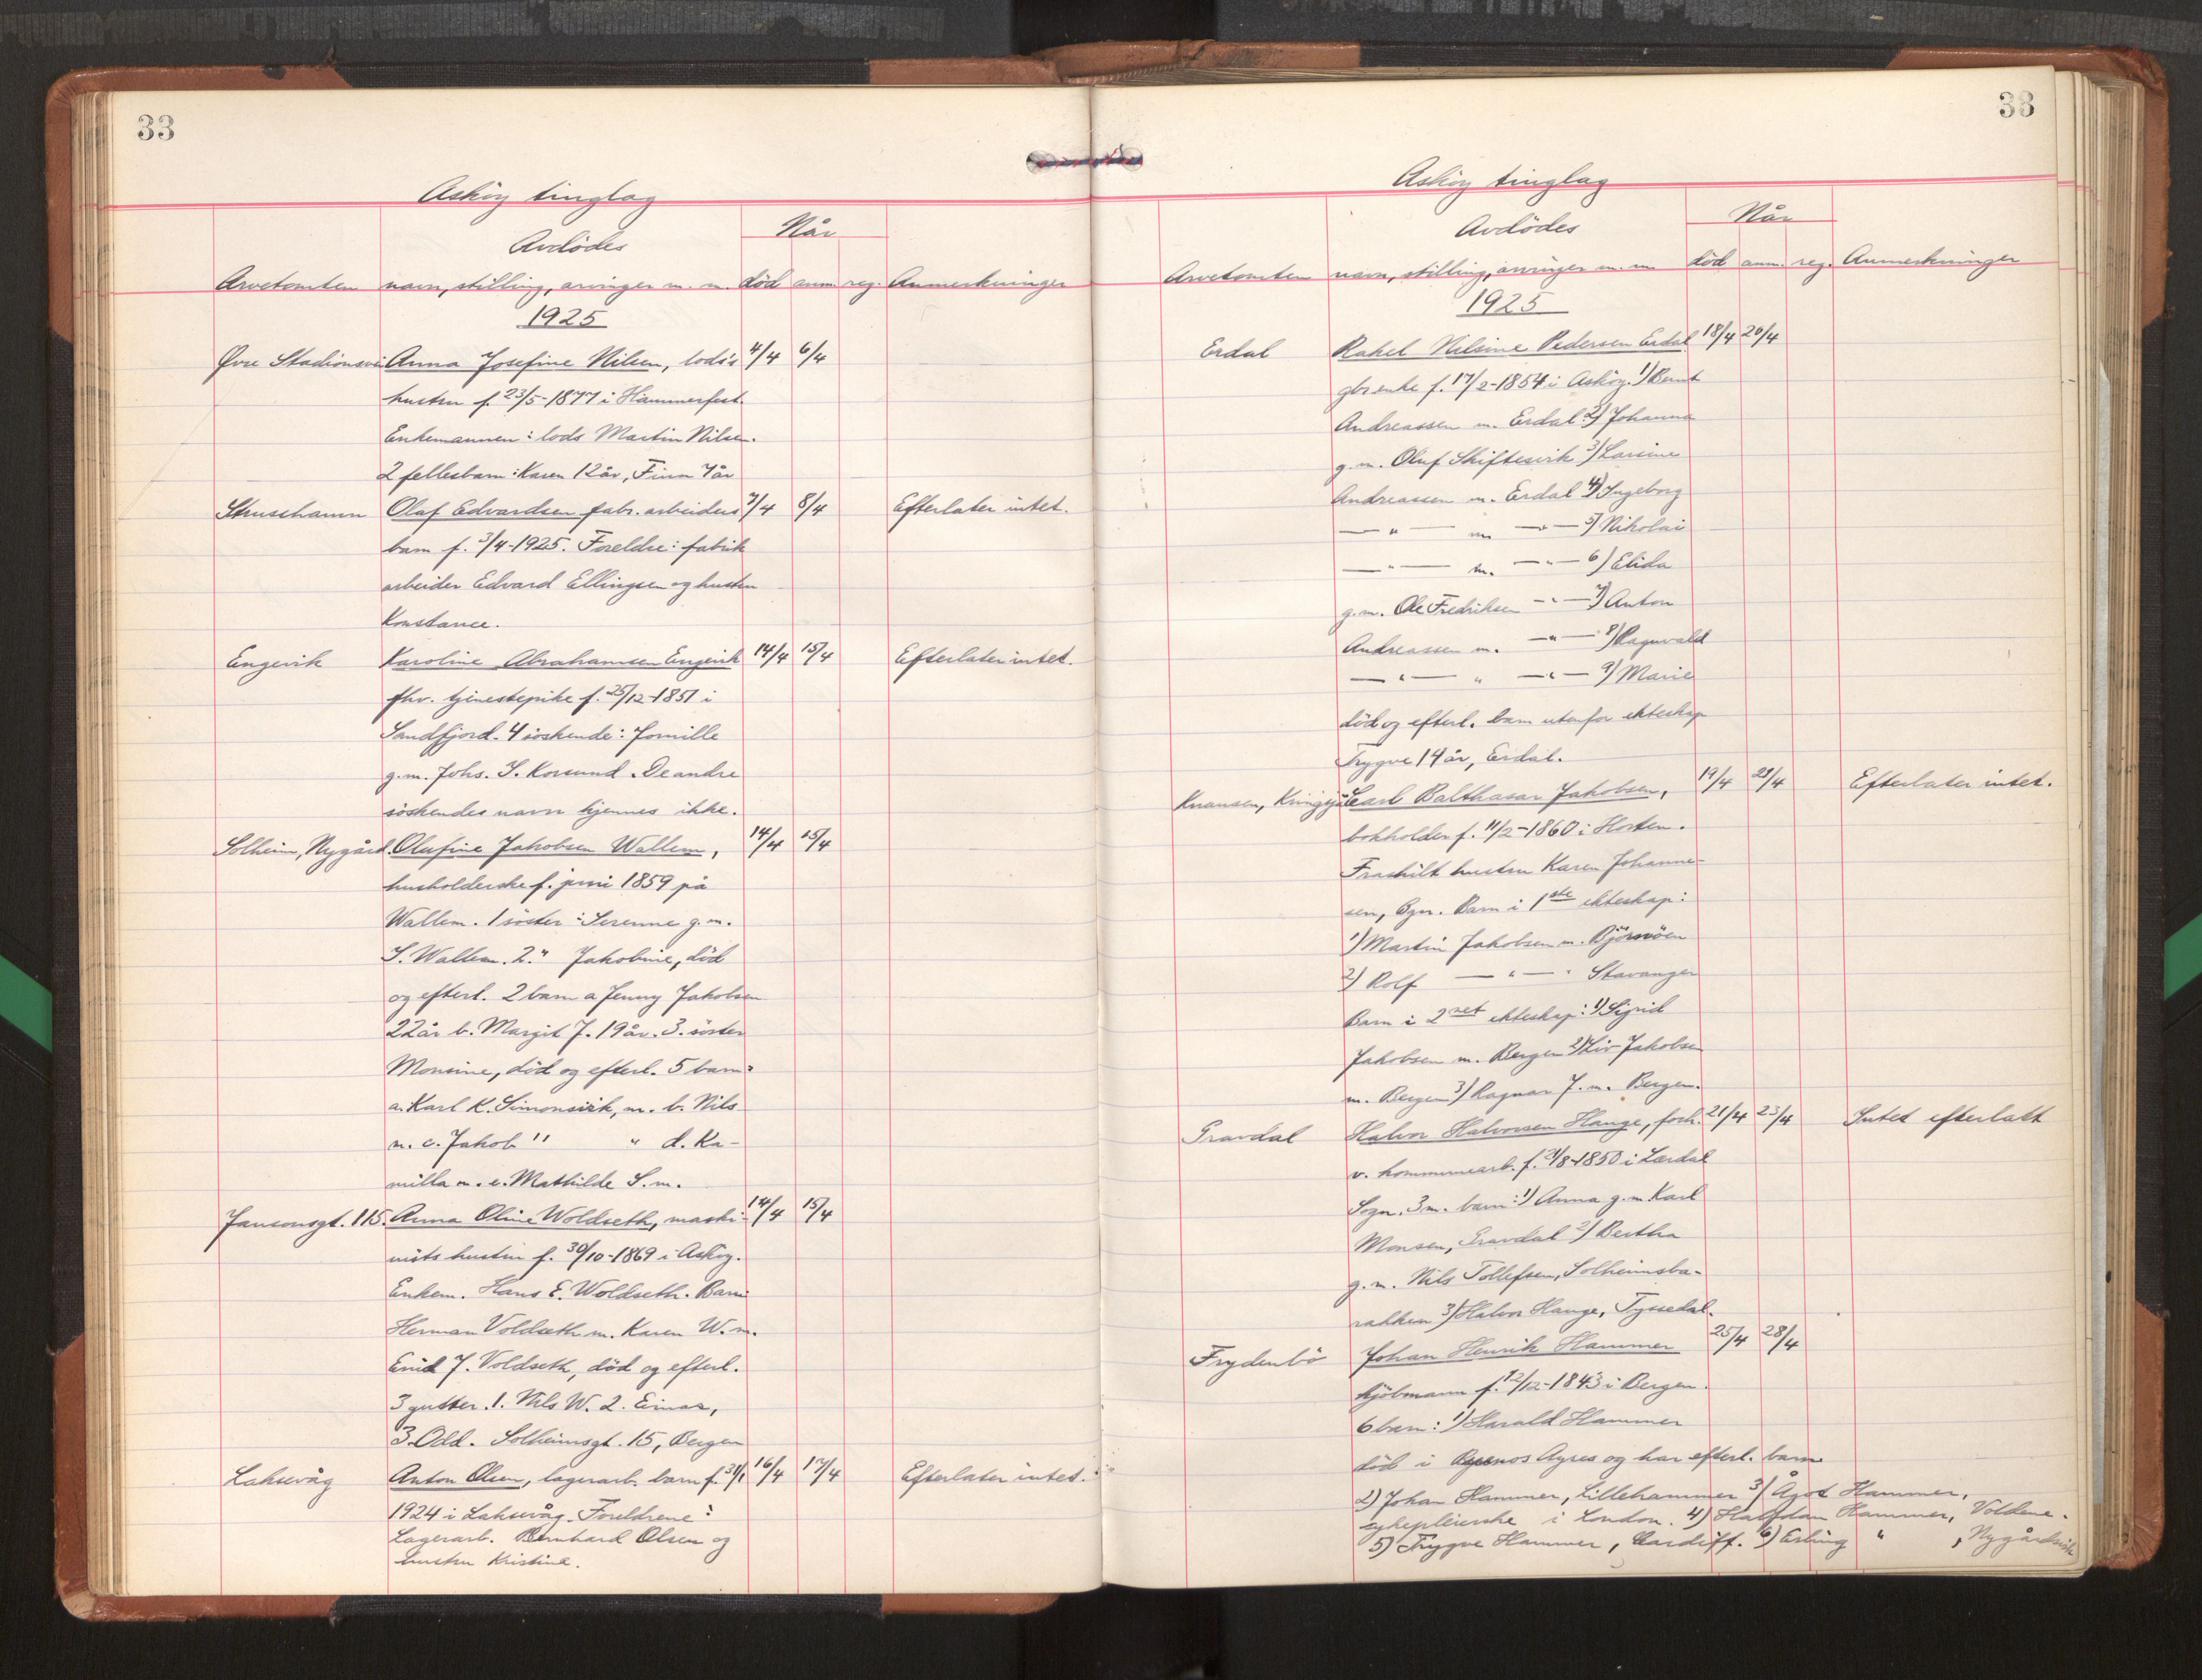 33
Askøy tinglag
Når
Avdödes
Arvetomten navn, stilling, arvinger m. m. död anm. reg. Anmerkninger
1925
Øvre Stadionsvei Anna Josefine Nilsen, lods's 4/4 6/4
hustru f. 23/5-1877 i Hammerfest.
Enkemannen: lods Martin Nilsen.
2 fellesbarn: Karen 12 år, Finn 7 år
Strusshamn Olaf Edvardsen fabr. arbeiders 7/4 8/4 Efterlater intet.
barn f. 3/4-1925. Foreldre: fabrik
arbeider Edvard Ellingsen og hustru
Konstance.
Engevik Karoline Abrahamsen Engevik 14/4 15/4 Efterlater intet.
fhv. tjenestepike f. 25/12-1851 i
Sandfjord. 4 söskende: Jornille
g.m. Johs. S. Korsund. De andre
söskendes navn kjennes ikke.
Solheim, Nygård. Olufine Jakobsen Wallem, 14/4 15/4
husholderske f. juni 1859 på
Wallem. 1 söster: Serenne g.m.
S. Wallem. 2. " Jakobine, död
og efterl. 2 barn a Jenny Jakobsen
22 år b. Margit J. 19 år. 3. söster
Monsine, död og efterl. 5 barn:
a. Karl K. Simonsvik, m. b. Nils
m. c. Jakob " " d. Ka-
milla m. e. Mathilde S. m.
Jansonsgt. 115. Anna Oline Woldseth, maski- 14/4 15/4
nists hustru f. 30/10-1869 i Askøy.
Enkem. Hans E. Woldseth. Barn:
Herman Voldseth m. Karen W. m.
Emil J. Voldseth, död og efterl.
3 gutter. 1. Nils W. 2. Einar,
3. Odd. Solheimsgt. 15, Bergen
Laksevåg Anton Olsen, lagerarb. barn f. 31/1 16/4 17/4 Efterlater intet.
1924 i Laksevåg. Foreldrene:
Lagerarb. Bernhard Olsen og
hustru Kristine.
33
Askøy tinglag
Når
Avdödes
Arvetomten navn, stilling, arvinger m. m. död anm. reg. Anmerkninger
1925
Erdal Rakel Nilsine Pedersen Erdal 18/4 20/4
gbr enke f. 17/2-1854 i Askøy. 1) Bernt
Andreassen m. Erdal 2) Johanna
g.m. Oluf Skiftesvik 3) Larsine
Andreassen m. Erdal 4) Ingeborg
— " — m — " — 5) Nikolai
— " — m. — " — 6) Elida
g.m. Ole Fredriksen — " — 7) Anton
Andreassen m. — " — 8) Ragnvald
— " — " — " — 9) Marie
död og efterl. barn utenfor ekteskap
Trygve 14 år, Erdal.
Knausen, Kringsjå Carl Balthasar Jakobsen, 19/4 21/4 Efterlater intet.
bokholder f. 11/2-1860 i Horten.
Fraskilt hustru Karen Johanne-
sen, Egn. Barn i 1ste ekteskap:
1) Martin Jakobsen m. Björnöen
2) Rolf — " — " Stavanger
Barn i 2net ekteskap: 1) Sigrid
Jakobsen m. Bergen 2) Liv Jakobsen
m. Bergen 3) Ragnar J. m. Bergen.
Gravdal Halvor Halvorsen Hauge, forh. 21/4 23/4 Intet efterlatt
v. kommunearb. f. 21/8-1850 i Lærdal
Sogn. 3 m. barn: 1) Anna g.m Karl
Monsen, Gravdal 2) Bertha
g.m. Nils Tollefsen, Solheimsba-
rakken 3) Halvor Hauge, Tyssedal.
Frydenbö Johan Henrik Hammer 25/4 28/4
kjöbmann f. 12/12-1843 i Bergen.
6 barn: 1) Harald Hammer
död i Buenos Ayres og har efterl. barn
2) Johan Hammer, Lillehammer 3) Ågot Hammer,
sykepleierske i London. 4) Halfdan Hammer, Voldene.
5) Trygve Hammer, Cardiff. 6) Erling " , Nygårdsvik